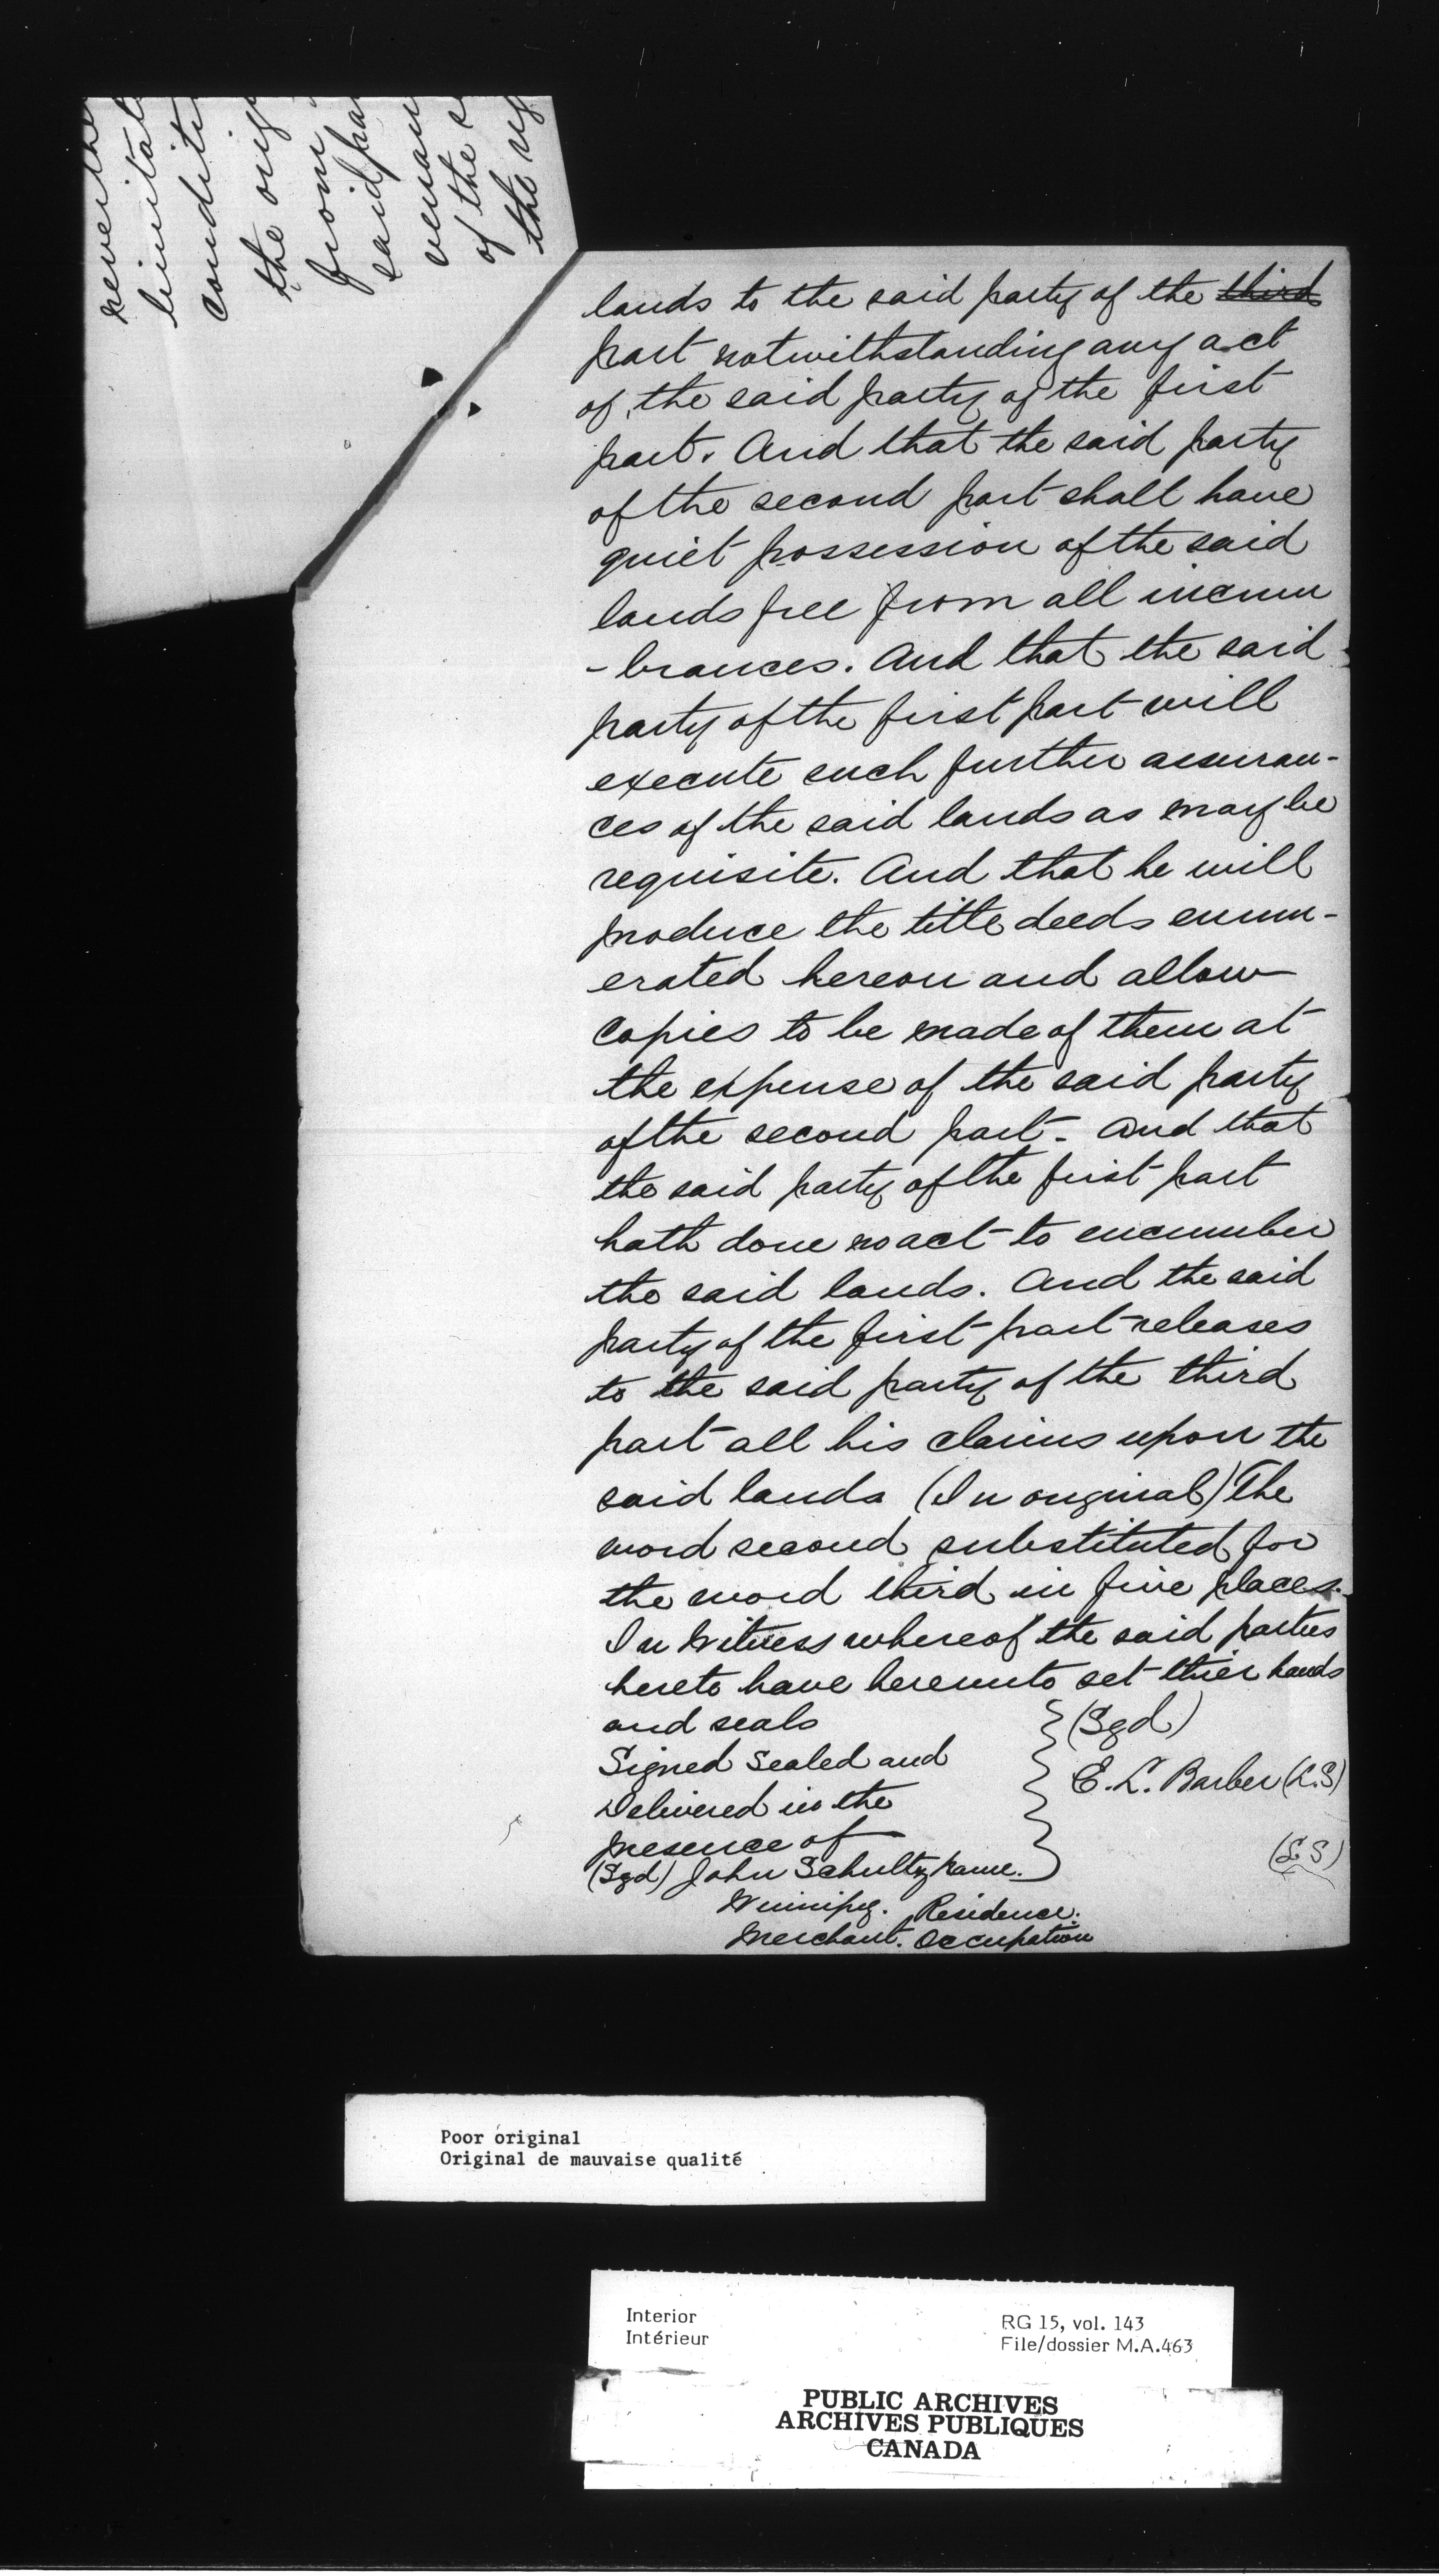 lands to the said party of the third
part notwithstanding any act
of the said party of the first
part. And that the said party
of the second part shall have
quiet possession of the said
lands free from all incum
- brances. And that the said
party of the first part will
execute such further assuran-
ces of the said lands as may be
requisite. And that he will
produce the title deeds enum-
erated hereon and allow
copies to be made of them at
the expense of the said party
of the second part - And that
the said party of the first part
hath done no act to encumber
the said lands. And the said
party of the first part releases
to the said party of the third
part all his claims upon the
said lands (In original) The
word second substituted for
the word third in five places.
In Witness whereof the said parties
hereto have hereunto set thier hands
and seals (Sgd)
Signed Sealed and
E. L. Barber (L.S)
Delivered in the
presence of
(LS)
(Sgd) John Schultz, name.
Winnipeg. Residence.
Merchant. Occupation
the orig
from
said pa
of the s
Poor original
Original de mauvaise qualité
Interior RG 15, vol. 143
Intérieur File/dossier M.A.463
PUBLIC ARCHIVES
ARCHIVES PUBLIQUES
CANADA